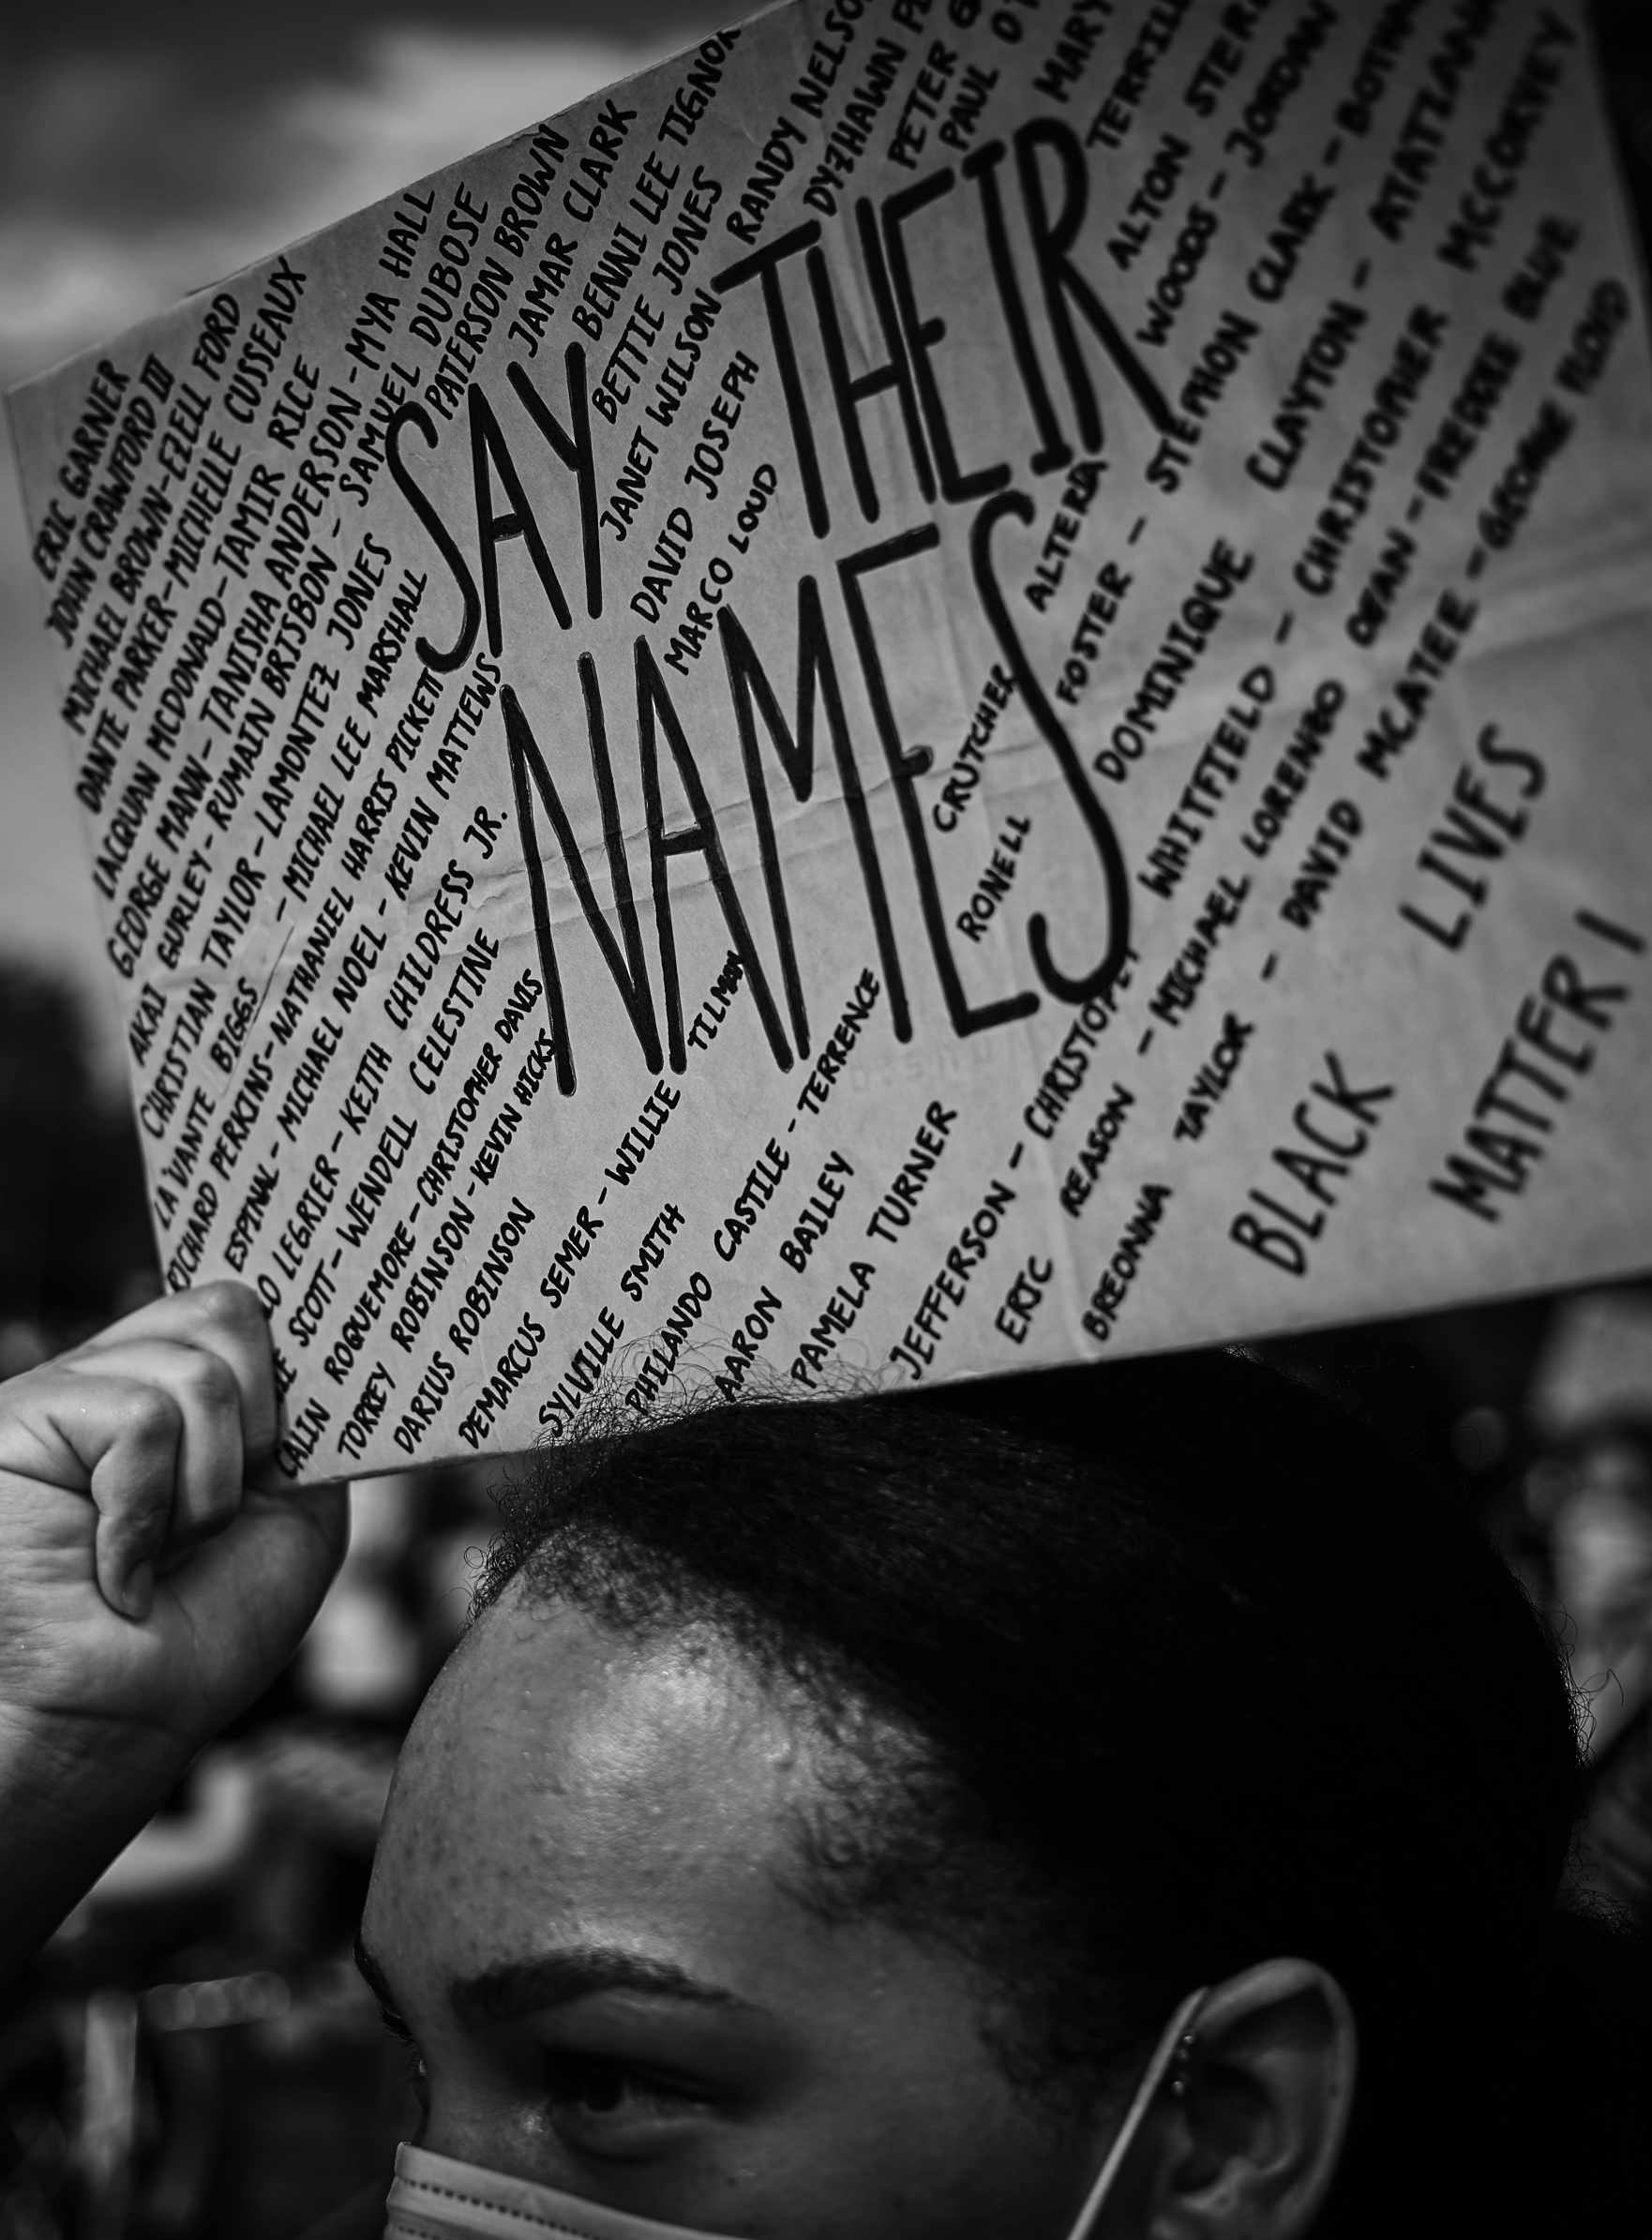 ERIC GARNER
JOHN CRAWFORD III
MICHAEL BROWN-EZELL FORD
DANTE PARKER-MICHELLE CUSSEAUX
LACQUAN MCDONALD-TAMIR RICE
GEORGE MANN-TANISHA ANDERSON-MYA HALL
AKAI GURLEY-RUMAIN BRISBON-SAMUEL DUBOSE
CHRISTIAN TAYLOR-LAMONTEZ JONES PATERSON BROWN
LA'VANTE BIGGS-MICHAEL LEE MARSHALL JAMAR CLARK
RICHARD PERKINS-NATHANIEL HARRIS PICKETT BENNI LEE TIGNOR
ESPINAL-MICHAEL NOEL-KEVIN MATTEWS BETTIE JONES
LO LEGRIER-KEITH CHILDRESS JR. JANET WILSON RANDY NELSO
SCOTT-WENDELL CELESTINE DAVID JOSEPH DYZHAWN
CALIN ROQUEMORE-CHRISTOPHER DAVIS MARCO LOUD PETER
TORREY ROBINSON-KEVIN HICKS PAUL
DARIUS ROBINSON MARY
DEMARCUS SEMER-WILLIE TILMAN TERRILL
SYLVILLE SMITH ALTON
PHILANDO CASTILE-TERRENCE CRUTCHER ALTERIA WOODS-JORDAN
AARON BAILEY RONELL FOSTER-STEPHON CLARK-
PAMELA TURNER DOMINIQUE CLAYTON-
JEFFERSON-CHRISTOPHER WHITFIELD-CHRISTOPHER MCCORVEY
ERIC REASON-MICHAEL LORENGO DEAN-FREDDIE BLUE
BREONNA TAYLOR-DAVID MCATEE-GEORGE FLOYD
SAY THEIR
NAMES
BLACK LIVES
MATTER!